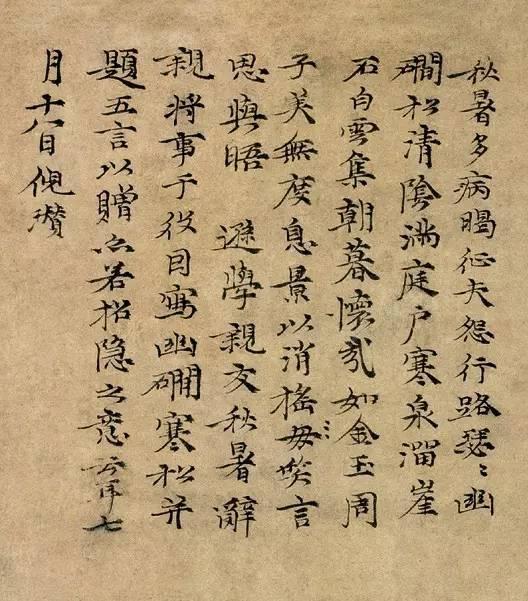 秋暑多病暍征夫怨行路瑟〻幽
磵松清陰滿庭戶寒泉溜崖
石白雲集朝暮懷哉如金玉周
子美無度息景以消搖毋笑言
思與晤 遜學親友秋暑辭
親將事于役因寫幽磵寒松并
題五言以贈亦若招隱之意云耳七
月十八日倪瓚